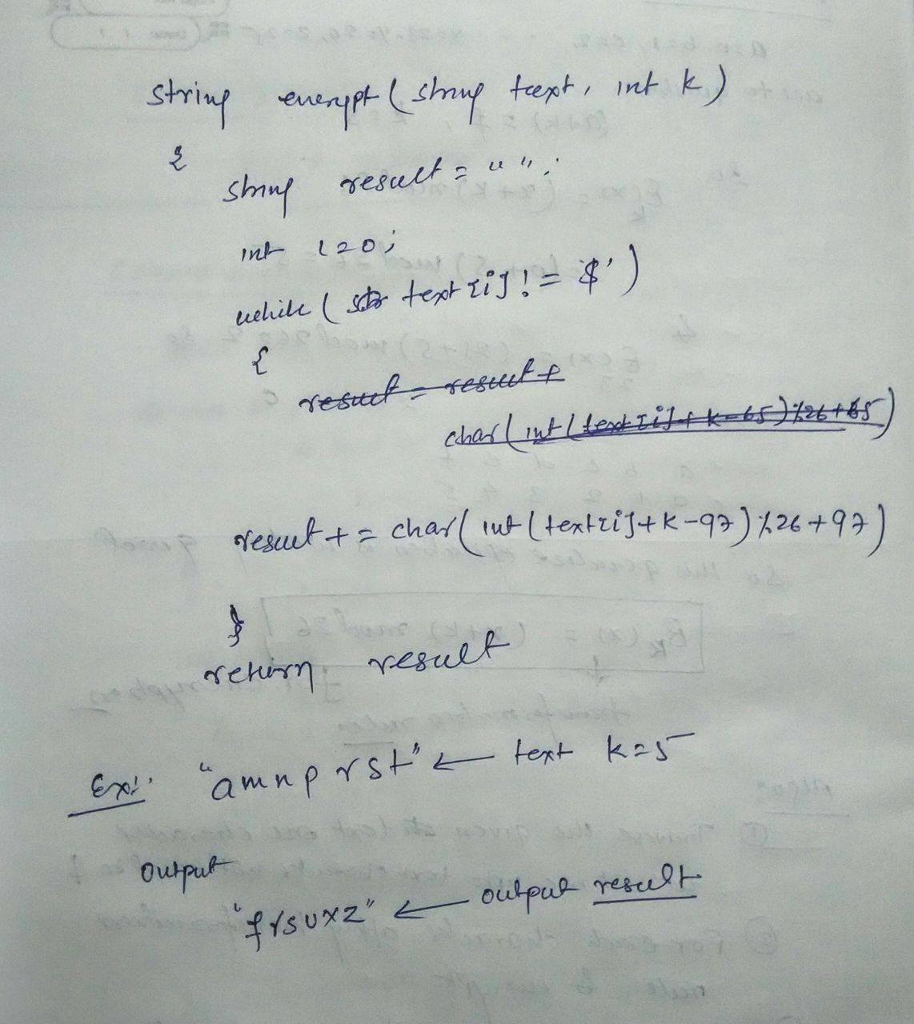 string encrypt ( string teext, int k )
{
string result = " " ;
int i=0;
while ( str text[i] != '$' )
{
result = result +
char( int ( text[i] + k - 65 ) % 26 + 65 )
result + = char( int ( text[i] + k - 97 ) % 26 + 97 )
}
return result
Ex:- "amnprst" ← text k=5
output
"frsuxz" ← output result